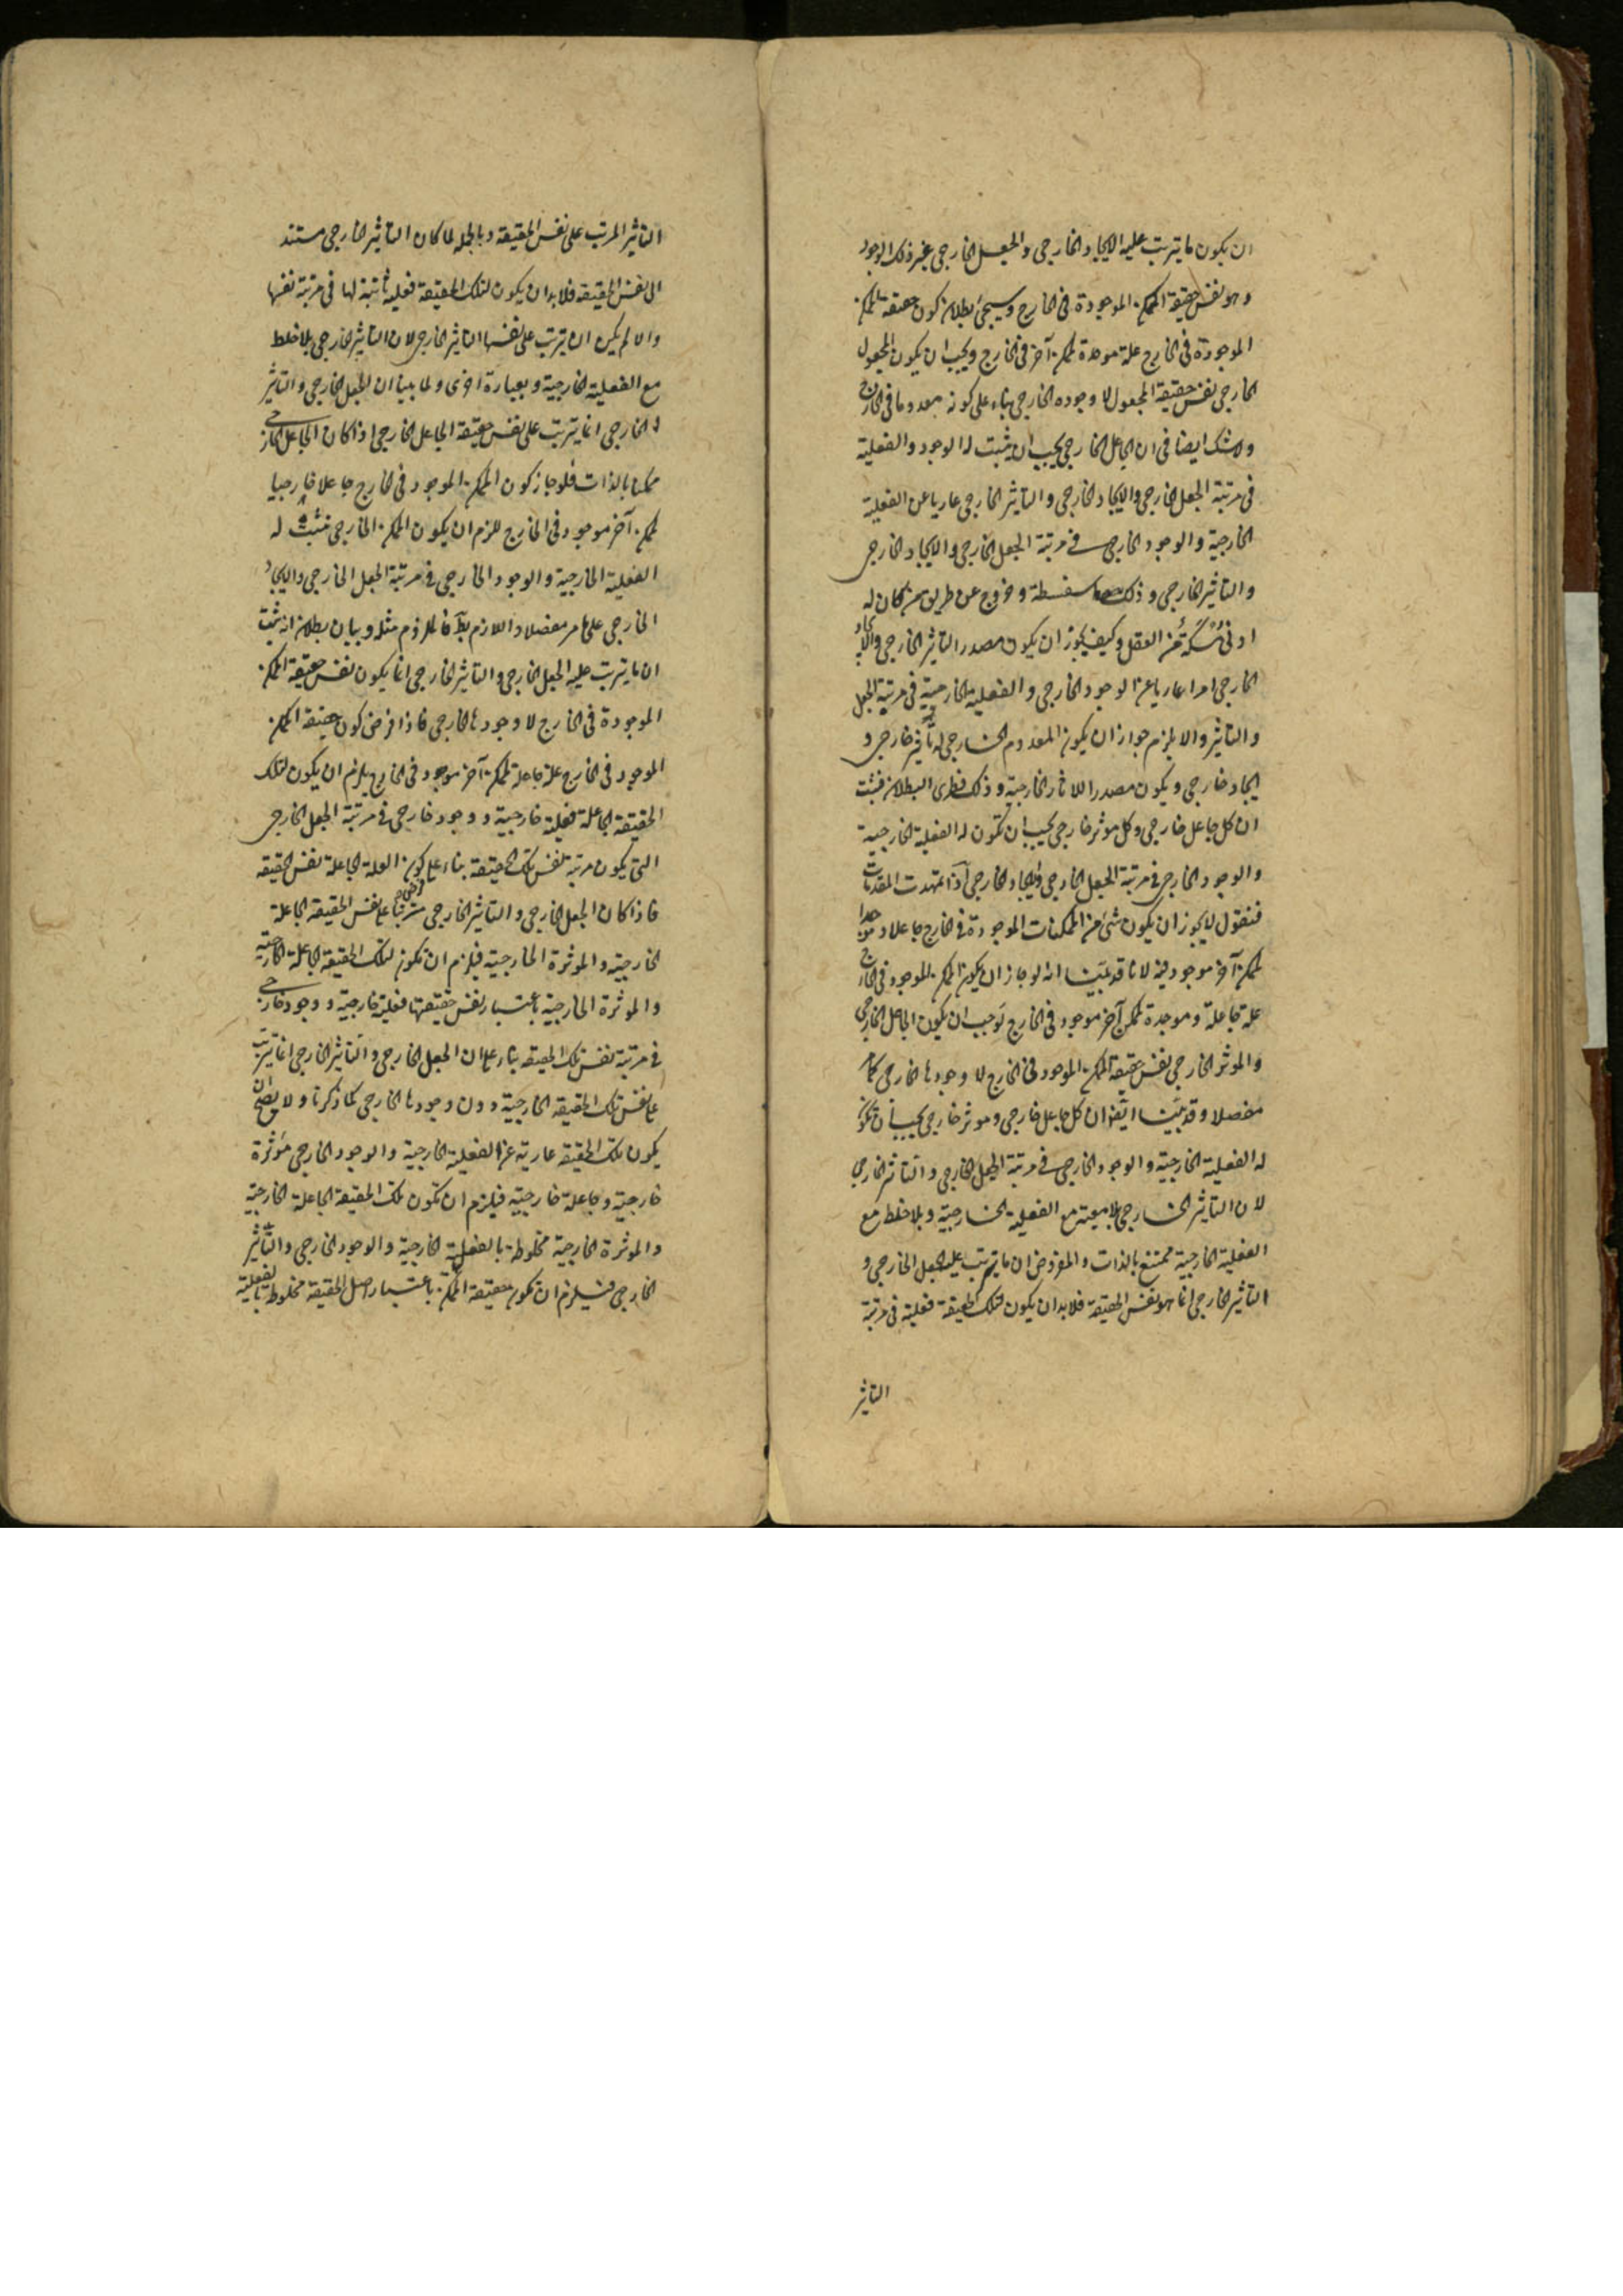 ان يكون ما يترتب عليه الايجاد الخارجى والجعل الخارجى غير ذلك الوجود
وهو نفس حقيقة الممكن الموجودة فى الخارج وسيجئ بطلان كون حقيقة الممكن
الموجودة فى الخارج علة موجدة لممكن آخر فى الخارج ويجب ان يكون المجعول
الخارجى نفس حقيقة المجعول لا وجوده الخارجى بناء على كونه معدوما فى الخارج
ولا شك ايضا فى ان الجاعل الخارجى يجب ان يثبت له الوجود والفعلية
فى مرتبة الجعل الخارجى والايجاد الخارجى والتاثير الخارجى عاريا عن الفعلية
الخارجية والوجود الخارجى فى مرتبة الجعل الخارجى والايجاد الخارجى
والتاثير الخارجى وذلك سفسطة وخروج عن طريق من كان له
ادنى مُسْكَةٍ من العقل وكيف يجوز ان يكون مصدر التاثير الخارجى والايجاد
الخارجى امرا عاريا عن الوجود الخارجى والفعلية الخارجية فى مرتبة الجعل
والتاثير والا يلزم جواز ان يكون المعدوم الخارجى له تأثير خارجى و
ايجاد خارجى ويكون مصدرا للآثار الخارجية وذلك فطرى البطلان فثبت
ان كل جاعل خارجى وكل موثر خارجى يجب ان تكون له الفعلية الخارجية
والوجود الخارجى فى مرتبة الجعل الخارجى والايجاد الخارجى اذا تمهدت المقدمات
فنقول لا يجوز ان يكون شئ من الممكنات الموجودة فى الخارج جاعلا وموجدا
لممكن آخر موجود فيه لانا قد بيّنا انه لو جاز ان يكون الممكن الموجود فى الخارج
علة جاعلة وموجدة لممكن آخر موجود فى الخارج لوجب ان يكون الجاعل الخارجى
والموثر الخارجى نفس حقيقة الممكن الموجود فى الخارج لا وجودها الخارجى كما مر
مفصلا وقد بيّنا ايضا ان كل جاعل خارجى وموثر خارجى يجب ان تكون
له الفعلية الخارجية والوجود الخارجى فى مرتبة الجعل الخارجى والتاثير الخارجى
لان التاثير الخارجى بلا معية مع الفعلية الخارجية وبلا خلط مع
الفعلية الخارجية ممتنع بالذات والمفروض ان ما يترتب عليه الجعل الخارجى و
التاثير الخارجى انما هو نفس الحقيقة فلا بد ان يكون لتلك الحقيقة فعلية فى مرتبة
التاثير
التاثير المرتب على نفس الحقيقة وبالجملة لما كان التاثير الخارجى مستند
الى نفس الحقيقة فلا بد ان يكون لتلك الحقيقة فعلية ثابتة لها فى مرتبة نفسها
والا لم يكن ان يترتب على نفسها التاثير الخارجى لان التاثير الخارجى بلا خلط
مع الفعلية الخارجية وبعبارة اخرى ولما بينا ان الجعل الخارجى والتاثير
الخارجى انما يترتب على نفس حقيقة الجاعل الخارجى اذا كان الجاعل الخارجى
ممكنا بالذات فلو جاز كون الممكن الموجود فى الخارج جاعلا خارجيا
لممكن آخر موجود فى الخارج للزم ان يكون الممكن الخارجى تثبت له
الفعلية الخارجية والوجود الخارجى فى مرتبة الجعل الخارجى والايجاد
الخارجى على ما مر مفصلا واللازم بط فالملزوم مثله وبيان بطلانه انه ثبت
ان ما يترتب عليه الجعل الخارجى والتاثير الخارجى انما يكون نفس حقيقة الممكن
الموجودة فى الخارج لا وجودها الخارجى فاذا فرض كون حقيقة الممكن
الموجود فى الخارج علة جاعلة لممكن آخر موجود فى الخارج يلزم ان يكون لتلك
الحقيقة الجاعلة فعلية خارجية ووجود خارجى فى مرتبة الجعل الخارجى
التى يكون مرتبة نفس تلك الحقيقة بناء على كون العلة الجاعلة نفس الحقيقة
فاذا كان الجعل الخارجى والتاثير الخارجى مترتبا على نفس الحقيقة الجاعلة
الخارجية والموثرة الخارجية فيلزم ان تكون لتلك الحقيقة الجاعلة الخارجية
والموثرة الخارجية باعتبار نفس حقيقتها فعلية خارجية ووجود خارجى
فى مرتبة نفس تلك الحقيقة بناء على ان الجعل الخارجى والتاثير الخارجى انما يترتب
على نفس تلك الحقيقة الخارجية دون وجودها الخارجى كما ذكرنا ولا يصح ان
يكون تلك الحقيقة عارية عن الفعلية الخارجية والوجود الخارجى مؤثرة
خارجية وجاعلة خارجية فيلزم ان تكون تلك الحقيقة الجاعلة الخارجية
والموثرة الخارجية مخلوطة بالفعلية الخارجية والوجود الخارجى والتاثير
الخارجى فيلزم ان تكون حقيقة الممكن باعتبار اصل الحقيقة مخلوطة بالفعلية